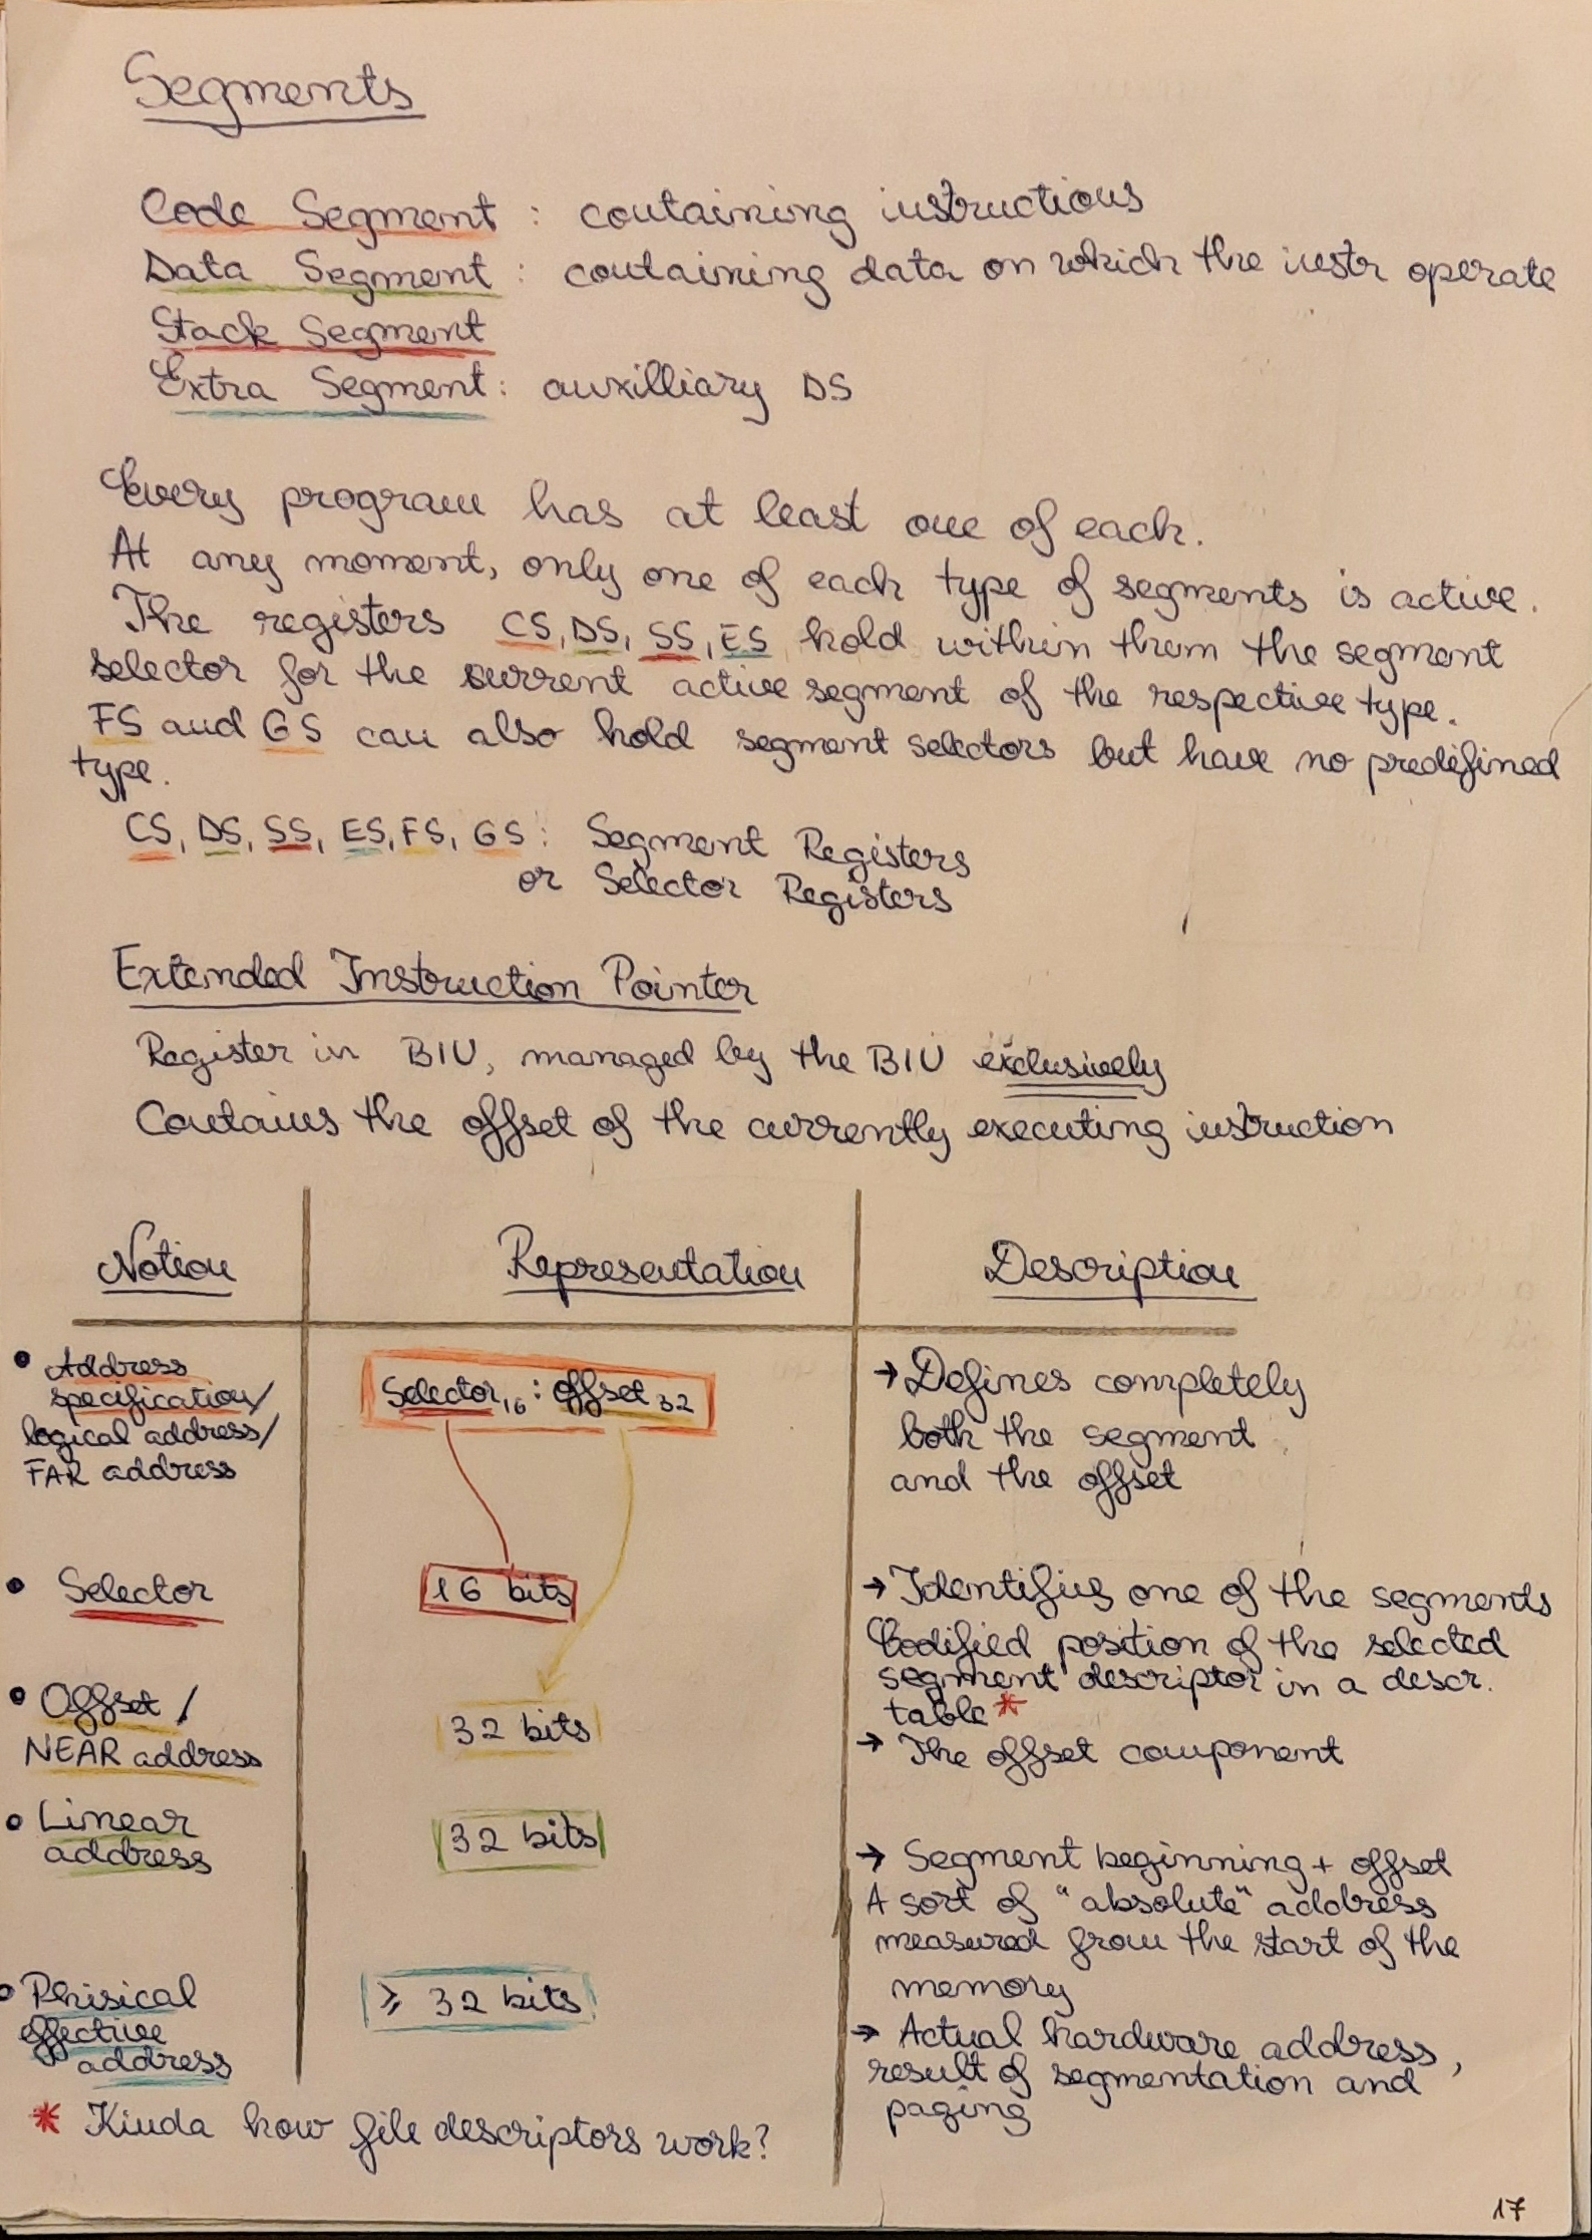 Segments
Code Segment : containing instructions
Data Segment : containing data on which the instr operate
Stack Segment
Extra Segment : auxilliary DS
Every program has at least one of each.
At any moment, only one of each type of segments is active.
The registers CS, DS, SS, ES hold within them the segment
selector for the current active segment of the respective type.
FS and GS can also hold segment selectors but have no predefined
type.
CS, DS, SS, ES, FS, GS : Segment Registers
or Selector Registers
Extended Instruction Pointer
Register in BIU, managed by the BIU exclusively
Contains the offset of the currently executing instruction
Notion Representation Description
• Address
specification/
logical address/
FAR address
Selector16 : offset32
→ Defines completely
both the segment
and the offset
• Selector
16 bits
→ Identifies one of the segments
Codified position of the selected
segment descriptor in a descr.
table *
• Offset /
NEAR address
32 bits
→ The offset component
• Linear
address
32 bits
→ Segment beginning + offset
A sort of "absolute" address
measured from the start of the
memory
• Phisical
effective
address
⩾ 32 bits
→ Actual hardware address,
result of segmentation and
paging
* Kinda how file descriptors work?
17